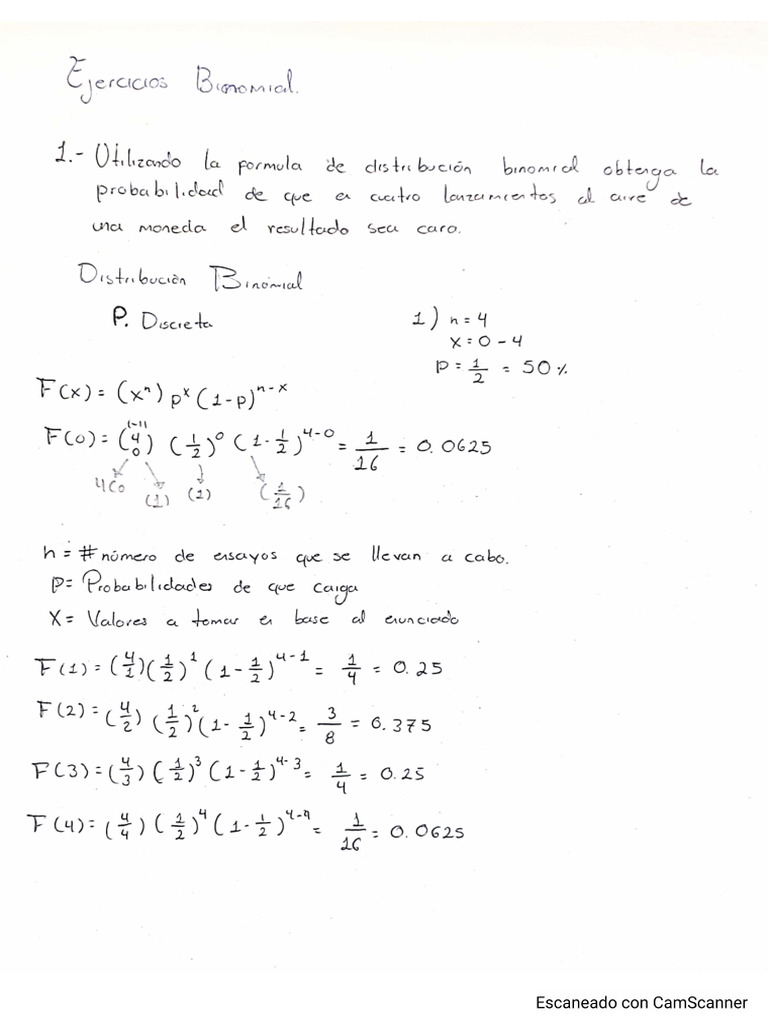 Ejercicios Binomial.
1.- Utilizando la formula de distribución binomial obtenga la
probabilidad de que en cuatro lanzamientos al aire de
una moneda el resultado sea cara.
Distribución Binomial
P. Discreta
1) n = 4
x = 0 - 4
p = 1/2 = 50 %
F(x) = (xⁿ) pˣ (1-p)ⁿ⁻ˣ
F(0) = (4 0) (1/2)⁰ (1-1/2)⁴⁻⁰ = 1/16 = 0.0625
4C0 (1) (1) (1/16)
n = # número de ensayos que se llevan a cabo.
p = Probabilidades de que caiga
X = Valores a tomar en base al enunciado
F(1) = (4/1) (1/2)¹ (1-1/2)⁴⁻¹ = 1/4 = 0.25
F(2) = (4/2) (1/2)² (1-1/2)⁴⁻² = 3/8 = 0.375
F(3) = (4/3) (1/2)³ (1-1/2)⁴⁻³ = 1/4 = 0.25
F(4) = (4/4) (1/2)⁴ (1-1/2)⁴⁻⁴ = 1/16 = 0.0625
Escaneado con CamScanner